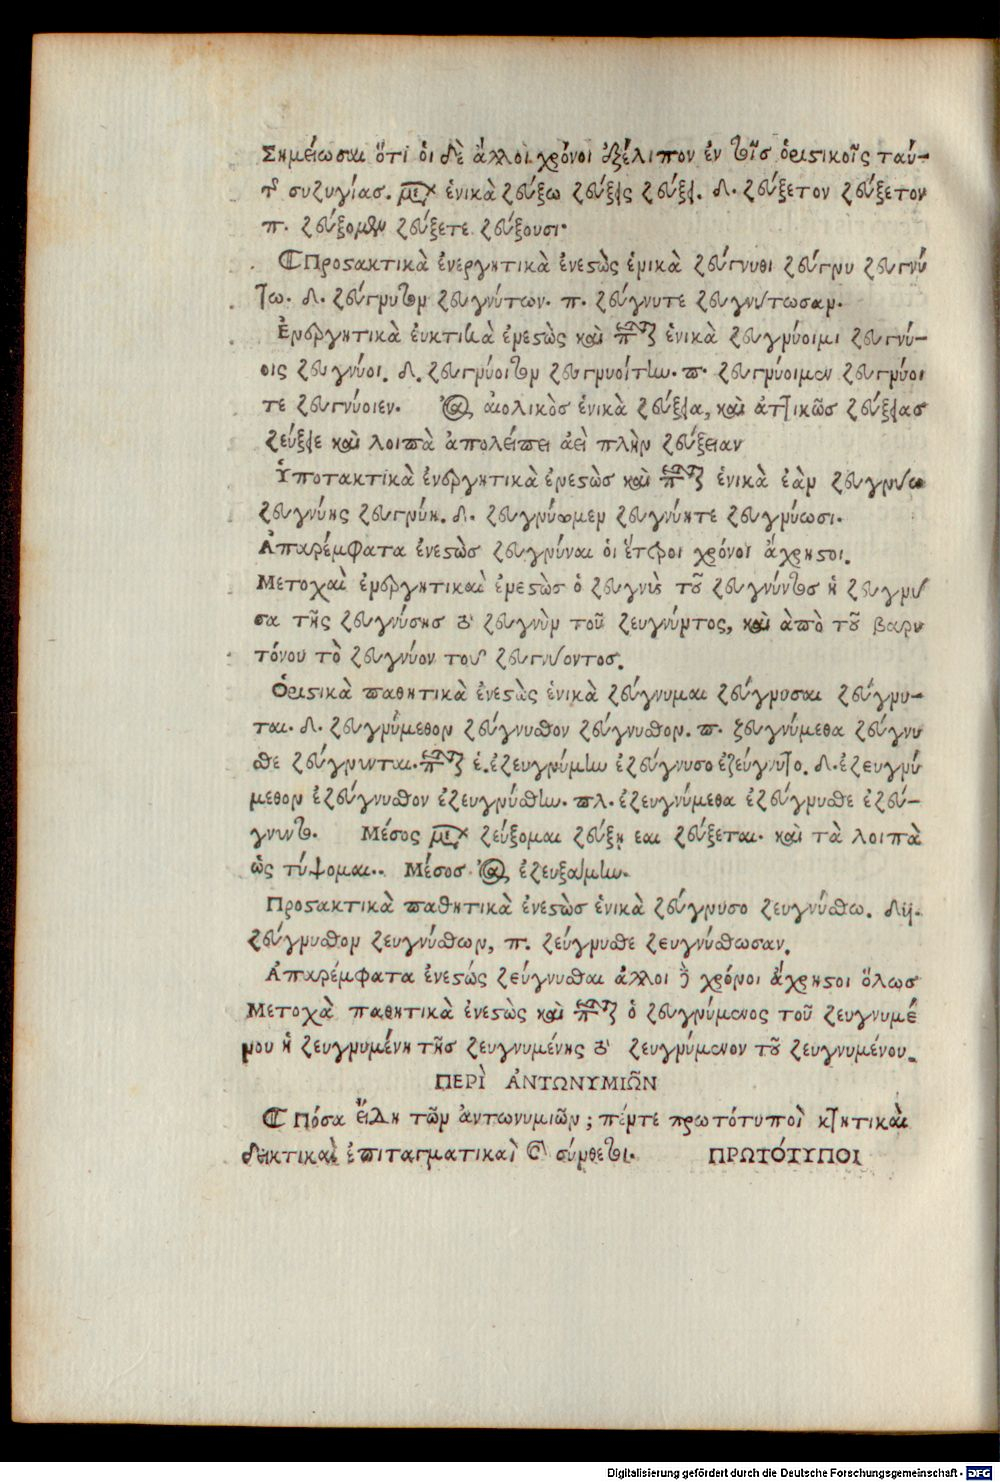 Σημείωσαι ὅτι οἱ δὲ ἄλλοι χρόνοι ἐξέλιπον ἐν τοῖς ὁριστικοῖς ταύ-
της συζυγίας. ἑνικὰ ζεύξω ζεύξεις ζεύξει. δ. ζεύξετον ζεύξετον
π. ζεύξομεν ζεύξετε ζεύξουσι·
Προστακτικὰ ἐνεργητικὰ ἐνεστὼς ἑνικὰ ζεύγνυθι ζεύγνυ ζευγνύ
τω. δ. ζεύγνυτον ζευγνύτων. π. ζεύγνυτε ζευγνύτωσαν.
Ἐνεργητικὰ εὐκτικὰ ἐνεστὼς καὶ ἑνικὰ ζευγνύοιμι ζευγνύ-
οις ζευγνύοι. δ. ζευγνύοιτον ζευγνυοίτην. π. ζευγνύοιμεν ζευγνύοι
τε ζευγνύοιεν. αἰολικὸς ἑνικὰ ζεύξεια, καὶ ἀττικῶς ζεύξειας
ζεύξειε καὶ λοιπὰ ἀπολείπει ἀεὶ πλὴν ζεύξειαν
Ὑποτακτικὰ ἐνεργητικὰ ἐνεστὼς καὶ ἑνικὰ ἐὰν ζευγνύω
ζευγνύης ζευγνύη. δ. ζευγνύωμεν ζευγνύητε ζευγνύωσι.
Ἀπαρέμφατα ἐνεστὼς ζευγνύναι οἱ ἕτεροι χρόνοι ἄχρηστοι.
Μετοχαὶ ἐνεργητικαὶ ἐνεστὼς ὁ ζευγνὺς τοῦ ζευγνύντος ἡ ζευγνῦ
σα τῆς ζευγνύσης τὸ ζευγνὺν τοῦ ζευγνύντος, καὶ ἀπὸ τοῦ βαρυ
τόνου τὸ ζευγνύον τοῦ ζευγνύοντος.
Ὁριστικὰ παθητικὰ ἐνεστὼς ἑνικὰ ζεύγνυμαι ζεύγνυσαι ζεύγνυ-
ται. δ. ζευγνύμεθον ζεύγνυσθον ζεύγνυσθον. π. ζευγνύμεθα ζεύγνυ
σθε ζεύγνυνται. ἑ. ἐζευγνύμην ἐζεύγνυσο ἐζεύγνυτο. δ. ἐζευγνύ
μεθον ἐζεύγνυσθον ἐζευγνύσθην. πλ. ἐζευγνύμεθα ἐζεύγνυσθε ἐζεύ-
γνυντο. Μέσος ζεύξομαι ζεύξη εαι ζεύξεται. καὶ τὰ λοιπὰ
ὡς τύψομαι.. Μέσος ἐζευξάμην.
Προστακτικὰ παθητικὰ ἐνεστὼς ἑνικὰ ζεύγνυσο ζευγνύσθω.
ζεύγνυσθον ζευγνύσθων, π. ζεύγνυσθε ζευγνύσθωσαν.
Ἀπαρέμφατα ἐνεστώς ζεύγνυσθαι ἄλλοι χρόνοι ἄχρηστοι ὅλως
Μετοχὰ παθητικὰ ἐνεστὼς καὶ ὁ ζευγνύμενος τοῦ ζευγνυμέ
νου ἡ ζευγνυμένη τῆς ζευγνυμένης τὸ ζευγνύμενον τοῦ ζευγνυμένου.
ΠΕΡῚ ἈΝΤΩΝΥΜΙΩ͂Ν
Πόσα εἴδη τῶν ἀντωνυμιῶν; πέντε πρωτότυποὶ κτητικαὶ
δεικτικαὶ ἐπιταγματικαὶ καὶ σύνθετοι. ΠΡΩΤΌΤΥΠΟΙ
Digitalisierung gefördert durch die Deutsche Forschungsgemeinschaft - DFG